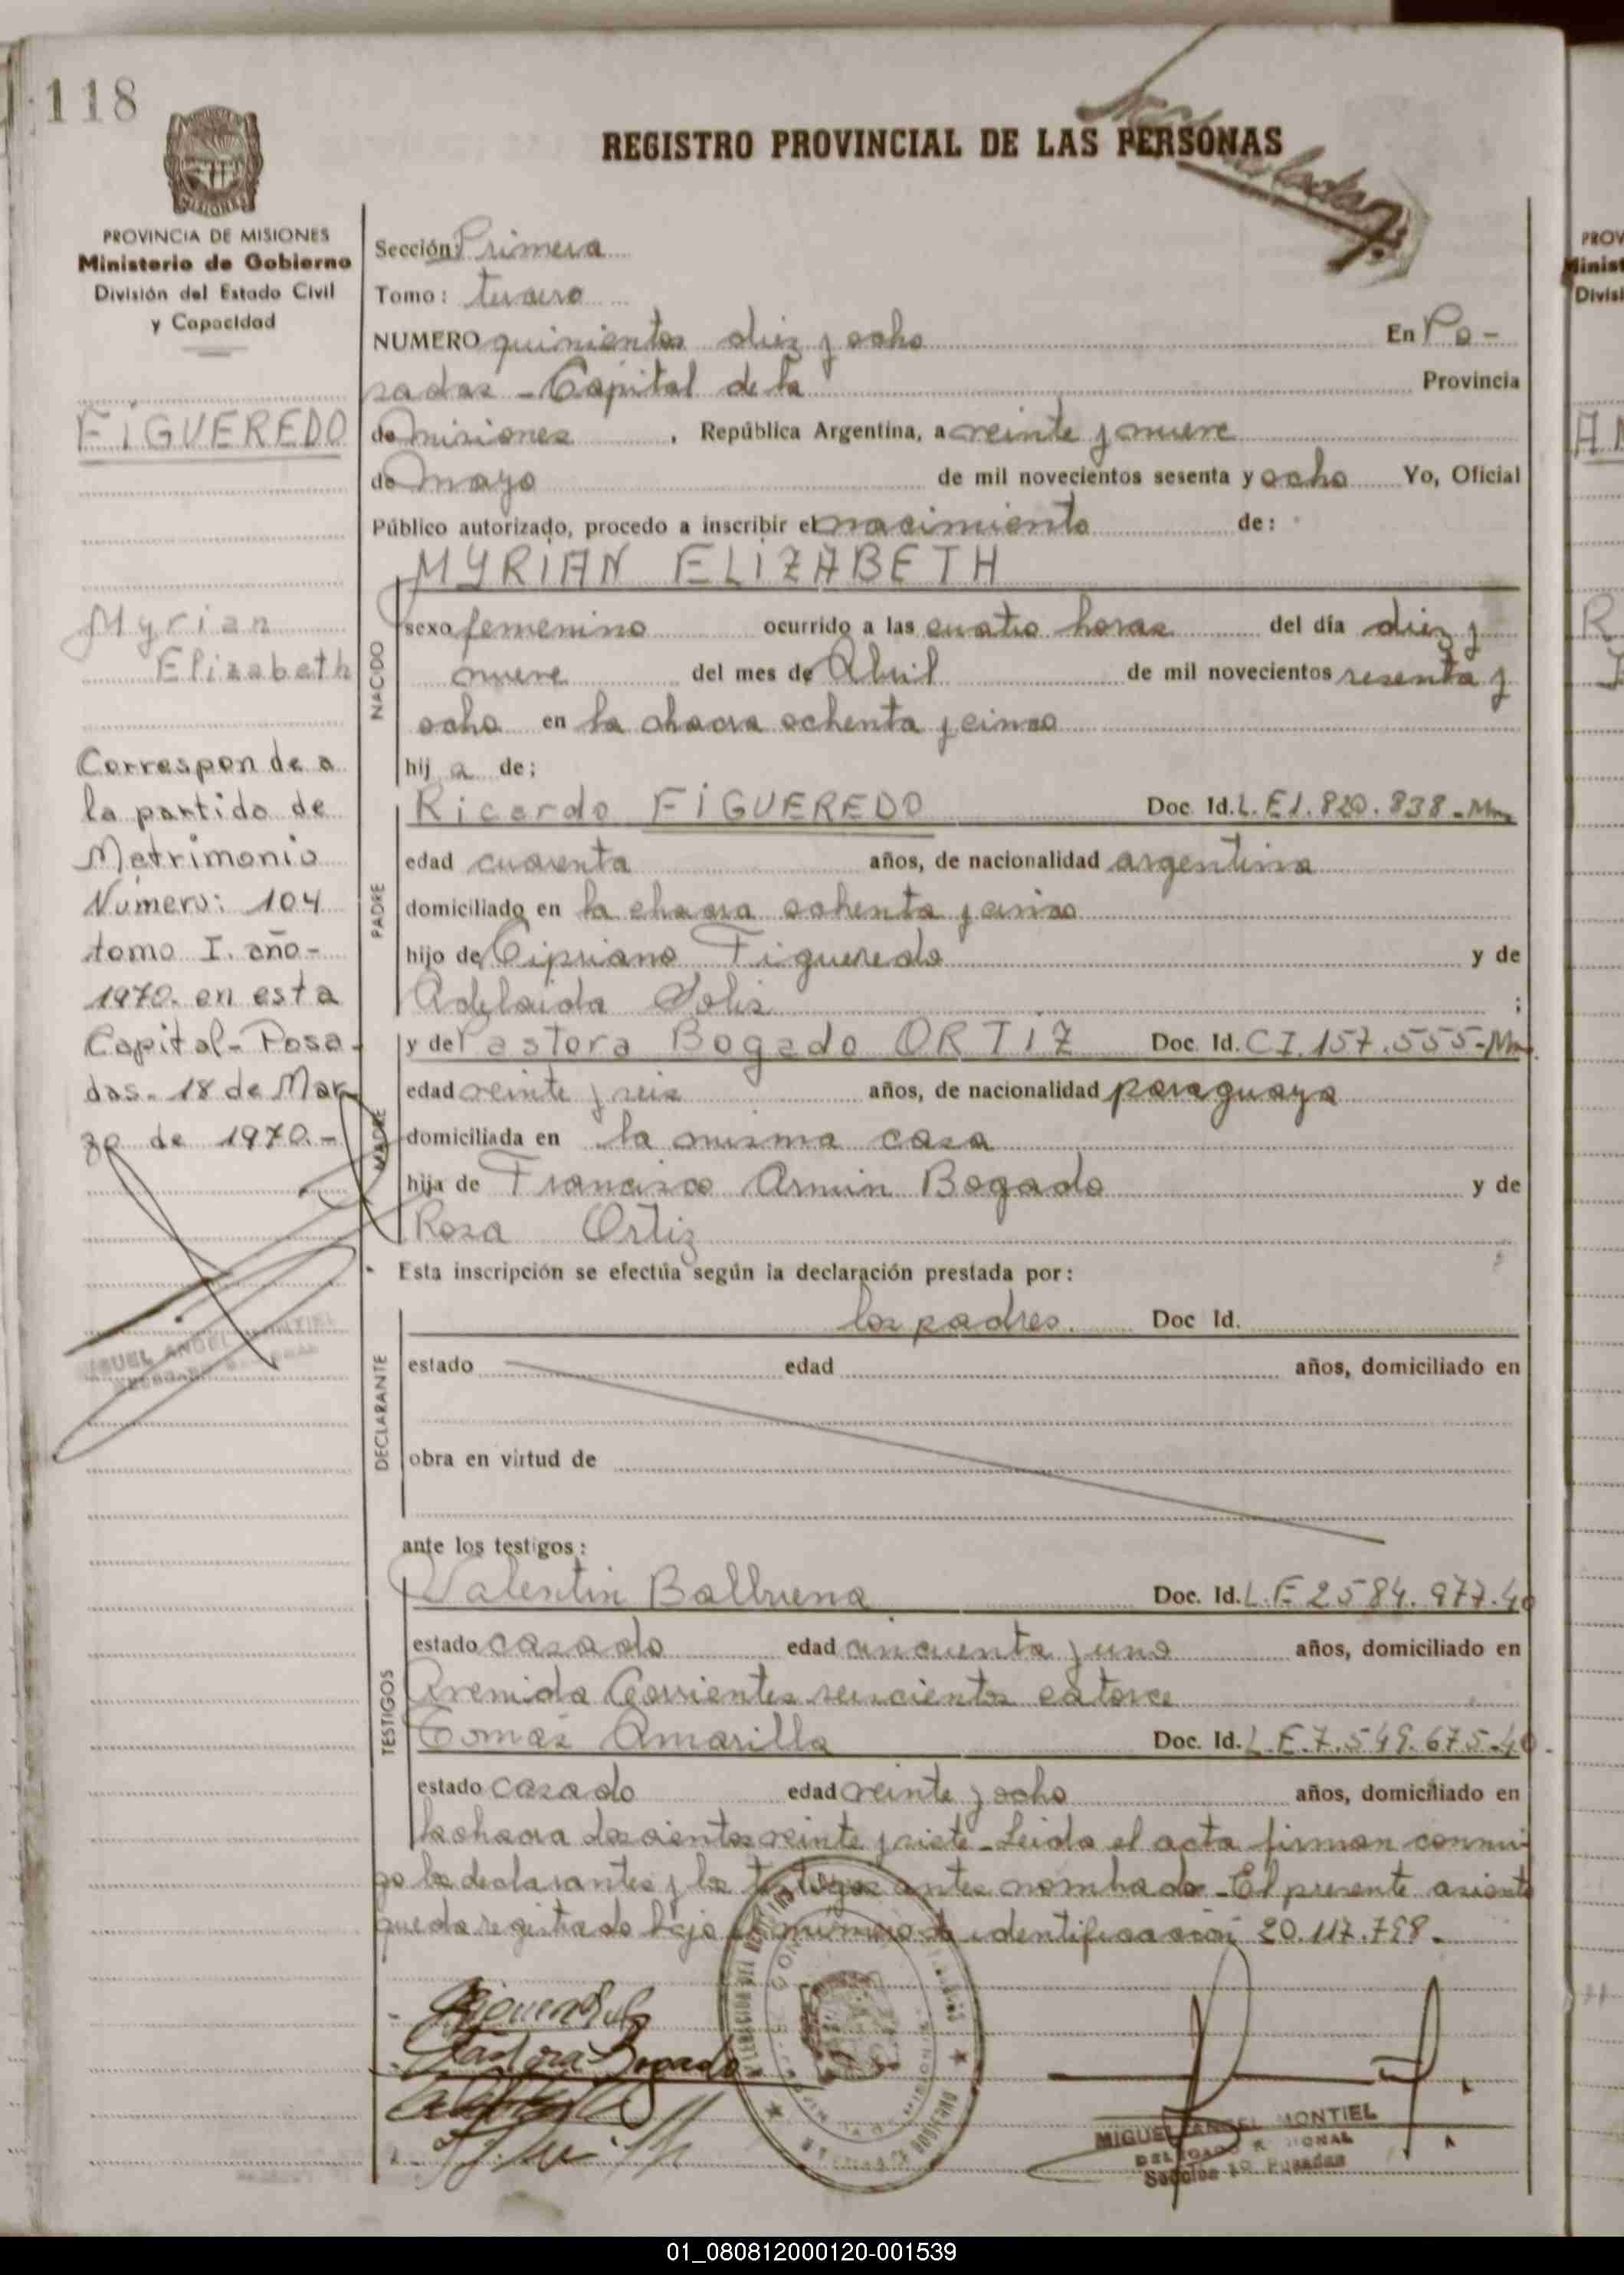 118
REGISTRO PROVINCIAL DE LAS PERSONAS
MISIONES
PROVINCIA DE MISIONES
Ministerio de Gobierno
División del Estado Civil
y Capacidad
FIGUEREDO
Myrian
Elizabeth
Corresponde a
la partida de
Matrimonio
Número: 104
tomo I. año-
1970. en esta
Capital- Posa-
das- 18 de Mar
zo de 1970.-
MIGUEL ANGEL MONTIEL
Sección: Primera
Tomo: tercero
NUMERO quinientos diez y ocho En Po-
sadas - Capital de la Provincia
de misiones, República Argentina, a veinte y nueve
de mayo de mil novecientos sesenta y ocho Yo, Oficial
Público autorizado, procedo a inscribir el nacimiento de:
MYRIAN ELIZABETH
NACIDO
sexo femenino ocurrido a las cuatro horas del día diez y
nueve del mes de Abril de mil novecientos sesenta y
ocho en la chacra ochenta y cinco
hij a de:
PADRE
Ricardo FIGUEREDO Doc. Id. L. E 1. 820. 838 - Mnes
edad cuarenta años, de nacionalidad argentina
domiciliado en la chacra ochenta y cinco
hijo de Cipriano Figueredo y de
Adelaida Solis ;
MADRE
y de Pastora Bogado ORTIZ Doc. Id. C I. 157. 555 - Mnes.
edad veinte y seis años, de nacionalidad paraguaya
domiciliada en la misma casa
hija de Francisco Armin Bogado y de
Rosa Ortiz
Esta inscripción se efectúa según la declaración prestada por:
DECLARANTE
los padres. Doc Id.
estado edad años, domiciliado en
obra en virtud de
ante los testigos:
TESTIGOS
Valentin Balbuena Doc. Id. L. E 2584. 977. 40
estado casado edad cincuenta y uno años, domiciliado en
Avenida Corrientes seiscientos catorce
Tomás Amarilla Doc. Id. L. E. 7. 549. 675-40.
estado casado edad veinte y ocho años, domiciliado en
la chacra doscientos veinte y siete - Leida el acta firman conmi
go los declarantes y los testigos antes nombrado - El presente asiento
queda registrado bajo el numero de identificación 20.117.798.
Pastora Bogado
MIGUEL ANGEL MONTIEL
DELEGADO REGIONAL
Sección 1a Posadas
PROV
Minist
Divisi
01_080812000120-001539